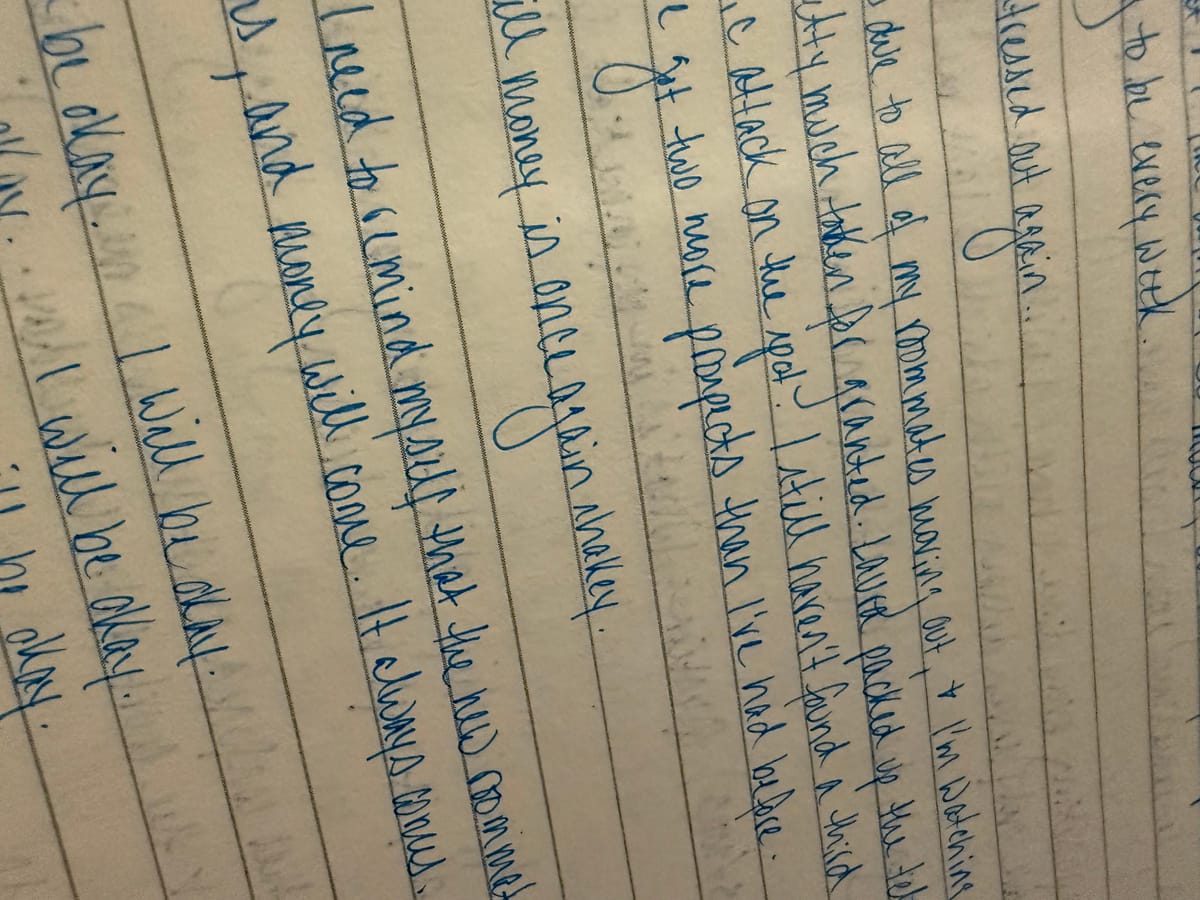 to be every week.
stressed out again..
due to all of my roommates moving out, + I'm watching
etty much taken for granted. Laura packed up the tel
ic attack on the spot. I still haven't found a third
e got two more prospects than I've had before.
ill money is once again shakey.
I need to remind myself that the new roommat
rs, and money will come. It always comes.
be okay. I will be okay.
okay. I will be okay.
ill be okay.